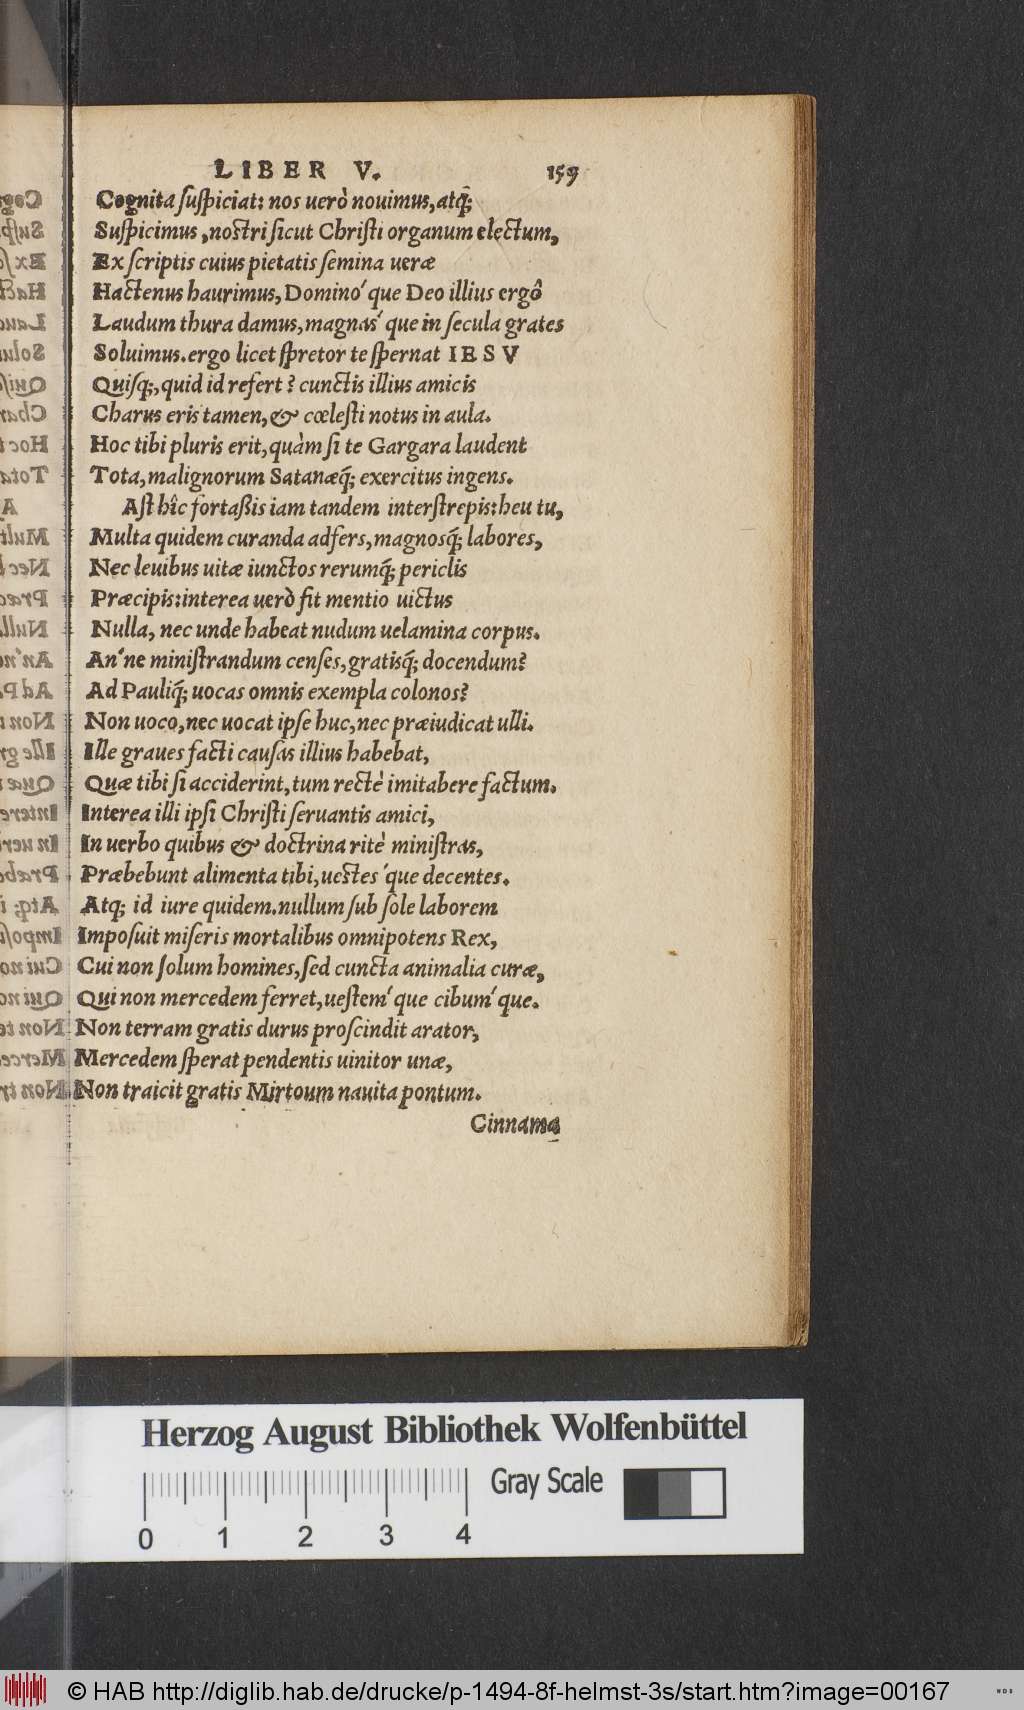 LIBER V. 159
Cognita ſuſpiciat: nos uerò nouimus, atq́;
Suſpicimus, noſtri ſicut Chriſti organum electum,
Ex ſcriptis cuius pietatis ſemina ueræ
Hactenus haurimus, Domino´que Deo illius ergô
Laudum thura damus, magnas´que in ſecula grates
Soluimus. ergo licet ſpretor te ſpernat IESV
Quiſq;, quid id refert? cunctis illius amicis
Charus eris tamen, & cœleſti notus in aula.
Hoc tibi pluris erit, quàm ſi te Gargara laudent
Tota, malignorum Satanæq́; exercitus ingens.
Aſt hîc fortaßis iam tandem interſtrepis: heu tu,
Multa quidem curanda adfers, magnosq́; labores,
Nec leuibus uitæ iunctos rerumq́; periclis
Præcipis: interea uerò fit mentio uictus
Nulla, nec unde habeat nudum uelamina corpus.
An´ne miniſtrandum cenſes, gratisq́; docendum?
Ad Pauliq́; uocas omnis exempla colonos?
Non uoco, nec uocat ipſe huc, nec præiudicat ulli.
Ille graues facti cauſas illius habebat,
Quæ tibi ſi acciderint, tum rectè imitabere factum.
Interea illi ipſi Chriſti ſeruantis amici,
In uerbo quibus & doctrina ritè miniſtras,
Præbebunt alimenta tibi, ueſtes´que decentes.
Atq; id iure quidem. nullum ſub ſole laborem
Impoſuit miſeris mortalibus omnipotens Rex,
Cui non ſolum homines, ſed cuncta animalia curæ,
Qui non mercedem ferret, ueſtem´que cibum´que.
Non terram gratis durus proſcindit arator,
Mercedem ſperat pendentis uinitor unæ,
Non traicit gratis Mirtoum nauita pontum.
Cinnama
Herzog August Bibliothek Wolfenbüttel
0 1 2 3 4 Gray Scale
© HAB http://diglib.hab.de/drucke/p-1494-8f-helmst-3s/start.htm?image=00167